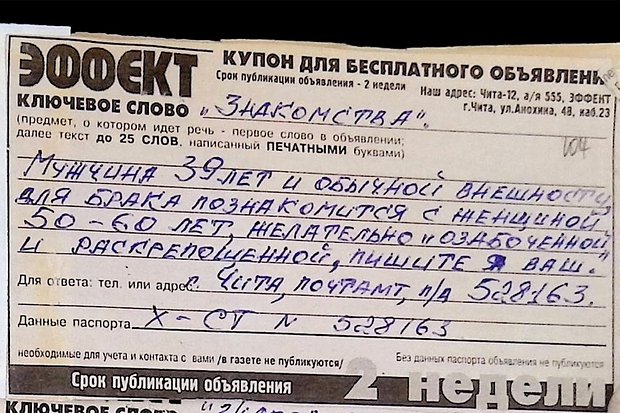 ЭФФЕКТ
КУПОН ДЛЯ БЕСПЛАТНОГО ОБЪЯВЛЕНИ
Срок публикации объявления - 2 недели
Наш адрес: Чита-12, а/я 555, ЭФФЕКТ
г.Чита, ул.Анохина, 48, каб.23
КЛЮЧЕВОЕ СЛОВО „Знакомства".
(предмет, о котором идет речь - первое слово в объявлении;
далее текст до 25 СЛОВ, написанный ПЕЧАТНЫМИ буквами)
104
Мужчина 39 лет и обычной внешности,
для брака познакомится с женщиной
50-60 лет, желательно „озабоченной"
и раскрепощенной, пишите я ваш.
Для ответа: тел. или адрес г. Чита, почтамт, п/д 528163.
Данные паспорта X-СТ N 528163
необходимые для учета и контакта с вами /в газете не публикуются/
Без данных паспорта объявления не публикуются
Срок публикации объявления 2 недели
КЛЮЧЕВОЕ СЛОВО